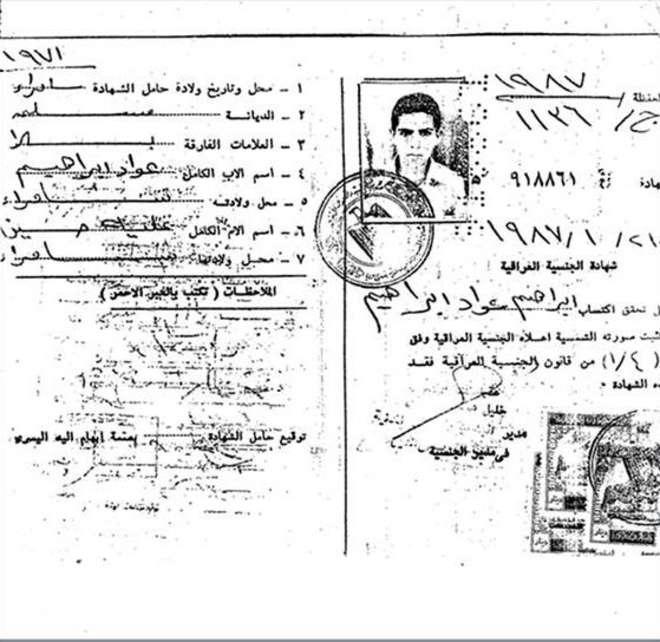 ١٩٨٧
١١٣٦
٩١٨٨٦١
١٩٨٧/١/٢١
شهادة الجنسية العراقية
تحقق اكتساب ابراهيم عواد ابراهيم
صورته الشمسية اعلاه الجنسية العراقية وفق
(١/٤) من قانون الجنسية العراقية فقد
الشهادة
خليل
مدير
١٩٧١
١ - محل وتاريخ ولادة حامل الشهادة سامراء
٢ - الديانة مسلم
٣ - العلامات الفارقة بلا
٤ - اسم الاب الكامل عواد ابراهيم
٥ - محل ولادته سامراء
٦ - اسم الام الكامل علية حسين
٧ - محل ولادتها سامراء
الملاحظات ( تكتب بالحبر الاحمر )
توقيع حامل الشهادة بصمة إبهام اليد اليسرى